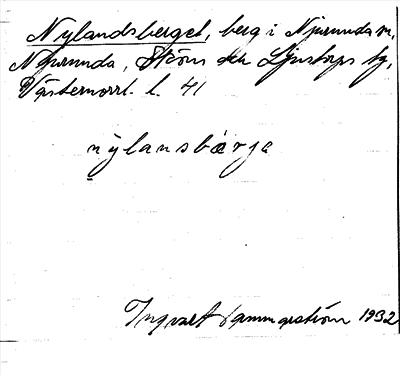 Nylandsberget, berg i Njurunda sn,
Njurunda, Sköns och Ljustorps tg,
Västernorrl. l. 41
nỳlansbærja
Ingvald Hammarström 1932